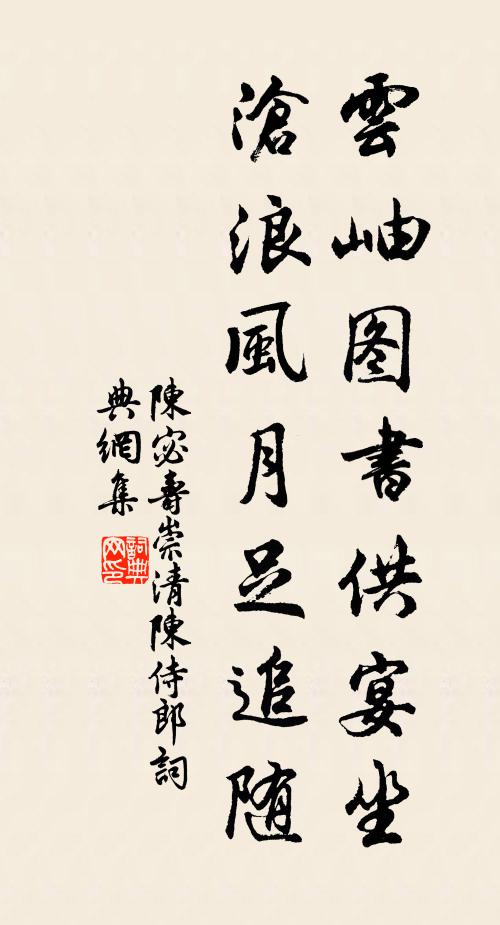 雲岫图書供宴坐
滄浪風月足追随
陳宓壽崇清陳侍郎詞
典網集
詞典
网印